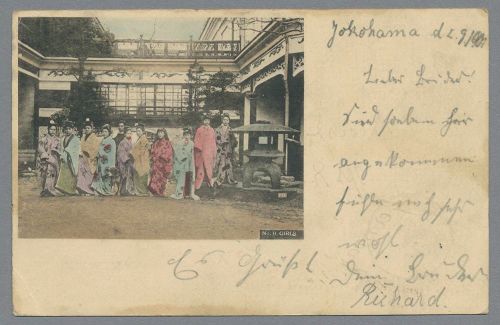 Yokohama d 2.9/1901
Lieber Bruder!
Sind soeben hier
angekommen
fühle mich sehr
wohl
Es Grüßt
Dein Bruder
Richard.
No. 9. GIRLS